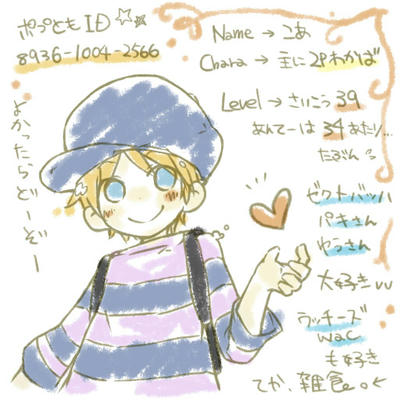 ポプともID
8936-1004-2566
よかったらどーぞー
Name → こあ
Chara → 主に2Pわかば
Level → さいこう39
あんてーは34あたり…
たぶん
ゼクトバッハ
パキさん
ゆうさん
大好きvv
ラッチーズ
wac
も好き
てか、雑食。